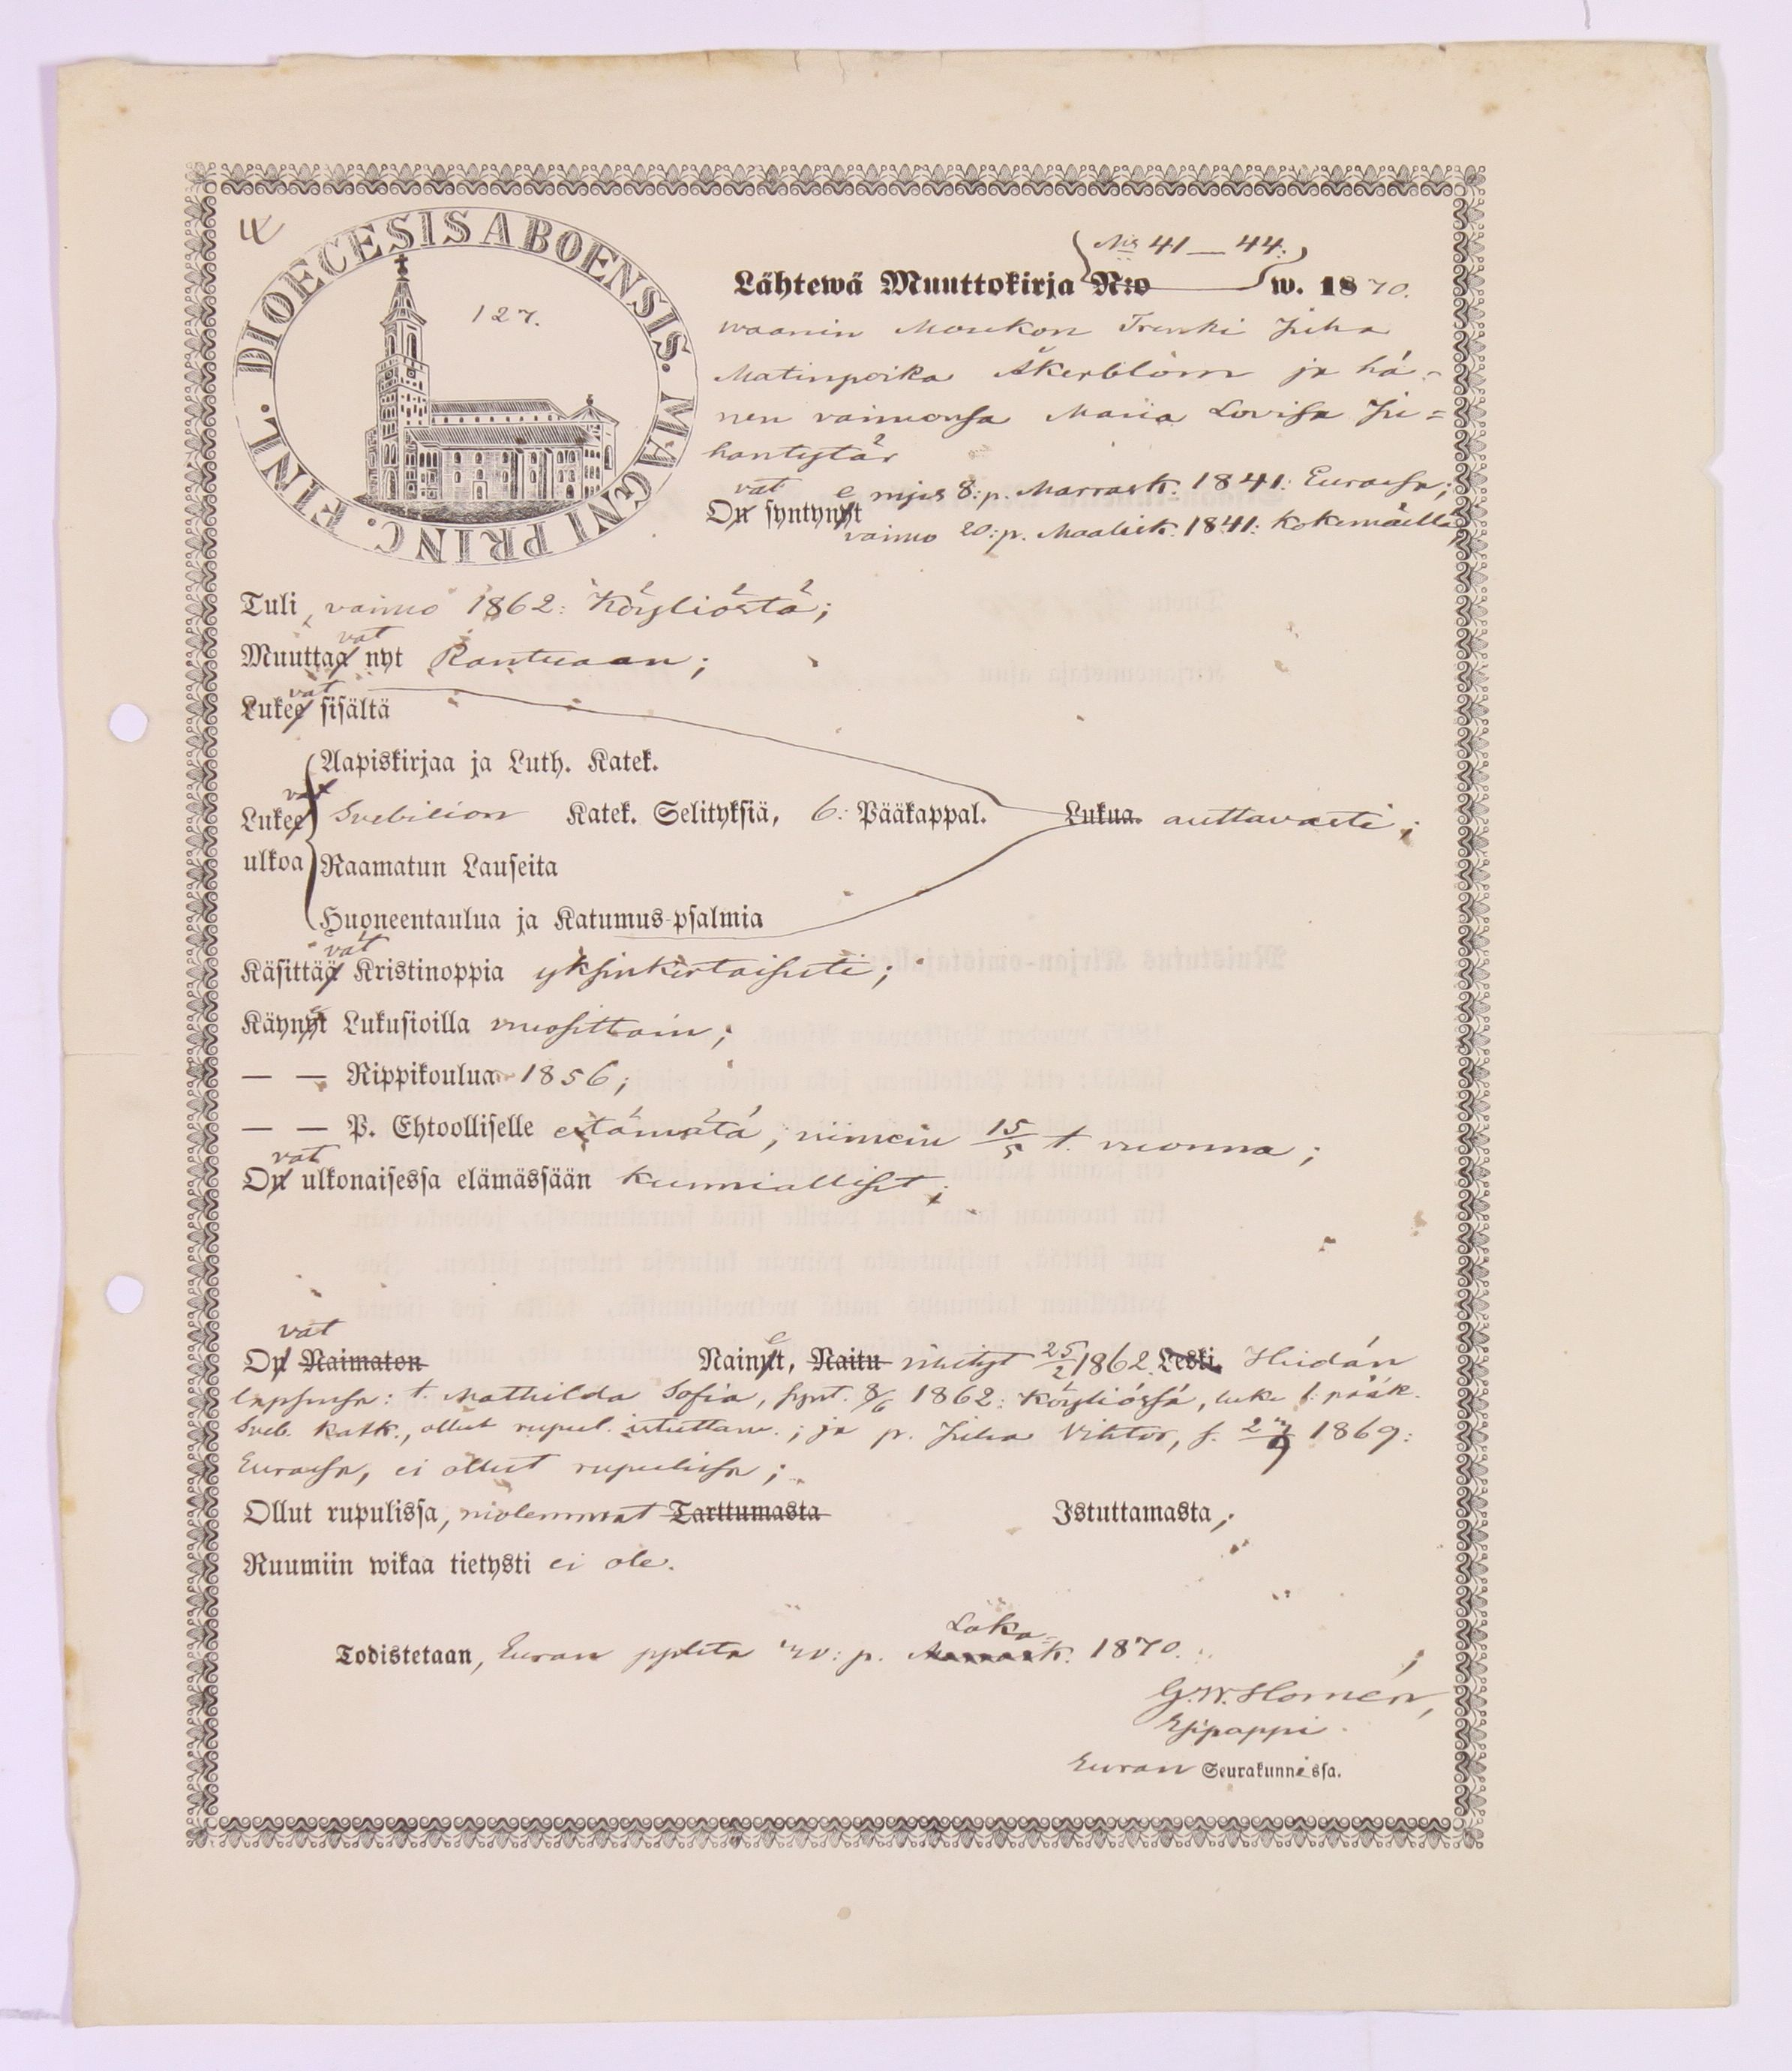 DIOECESIS ABOENSIS. MAGNI PRINC. FINL.
127.
N:is 41 — 44:
Lähtewä Muuttokirja N:o w. 1870.
Juha
Matinpoika Åkerblom ja hä=
nen vaimonsa Maria Lovisa Ju=
hantytär
vat e mjes 8: p. Marrask. 1841: Eurassa;
On syntynyt
vaimo 20: p. Maalisk. 1841: Kokemäellä;
Tuli, vaimo 1862: Köyliöstä;
vat
Muuttaa nyt Rantuaan;
vat
Lukee sisältä
Aapiskirjaa ja Luth. Katek.
vat
Lukee Svebilion Katek. Selityksiä, 6: Pääkappal. Lukua. auttavasti;
ulkoa Raamatun Lauseita
Huoneentaulua ja Katumus-psalmia
vät
Käsittää Kristinoppia yksinkertaisesti;
Käynyt Lukusioilla vuosittain;
— — Rippikoulua 1856;
— — P. Ehtoolliselle estämätä, viimein 15/5 t. vuonna;
vat
On ulkonaisessa elämässään kunnialliset;
vat
On Naimaton Nainyt, Naitu vihityt 25/2 1862. Leski Heidän
lapsensa: t. Mathilda Sofia, synt. 8/6 1862: Köyliössä, luke 1: pääk.
Sveb. katk., ollut rupul. istuttam.; ja p. Juha Vihtor, s. 27/9 1869:
Eurassa, ei ollut rupulissa;
Ollut rupulissa, molemmat Tarttumasta Istuttamasta;
Ruumiin wikaa tietysti ei ole.
Loka=
Todistetaan, Euran p. Marrask. 1870.
G. W. Homén,
Esipappi
Euran Seurakunnissa.